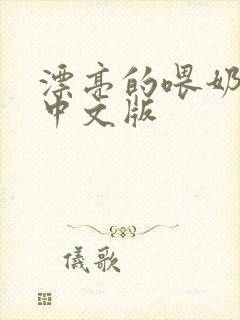 漂亮的喂奶
中文版
儀歌